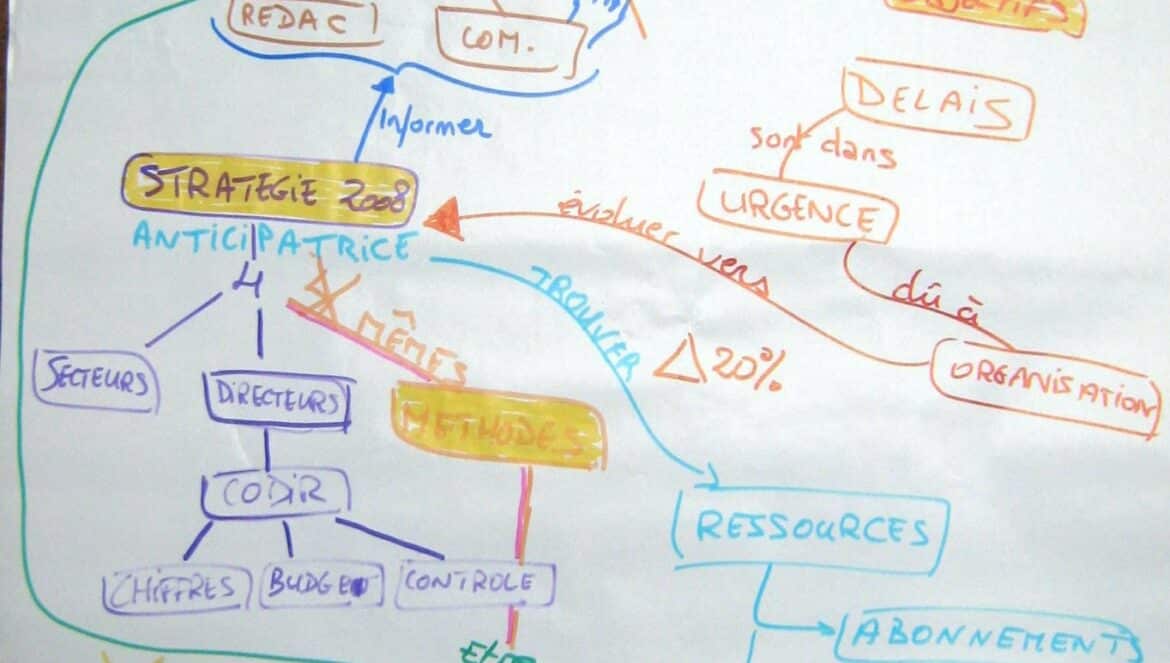 OBJECTIFS
REDAC
COM.
DELAIS
Informer
sont dans
STRATEGIE 2008
URGENCE
évoluer vers
ANTICIPATRICE
4
TROUVER
dû à
MÊMES
Δ 20%
SECTEURS
DIRECTEURS
ORGANISATION
METHODES
CODIR
RESSOURCES
CHIFFRES
BUDGET
CONTROLE
ABONNEMENTS